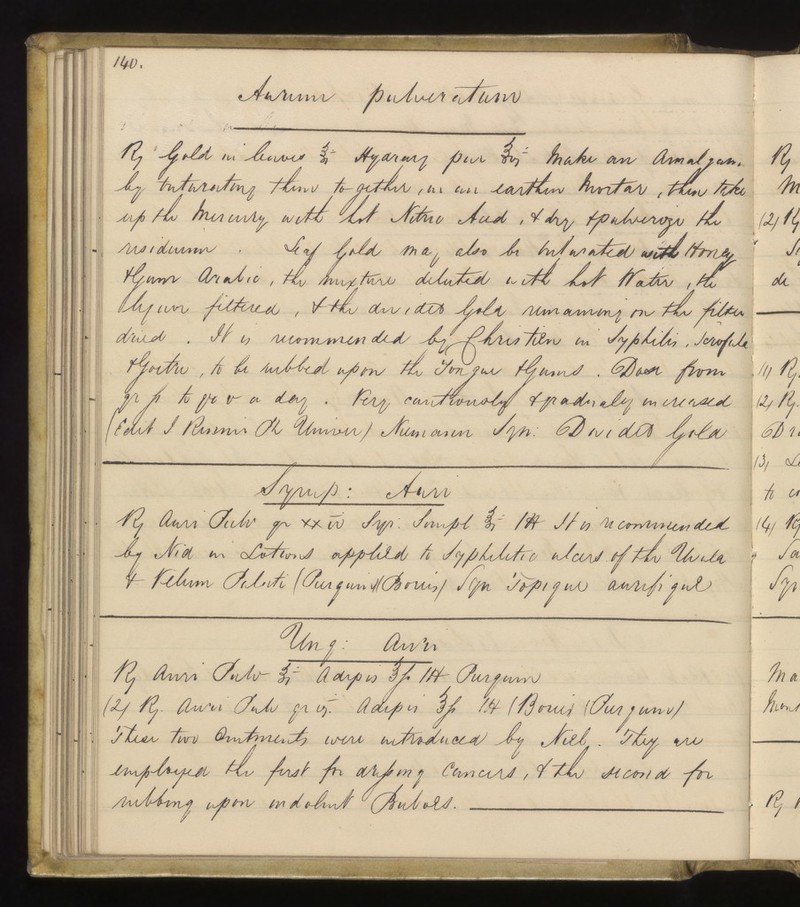 140.
Aurum pulveratum
℞ Gold in leaves ʒi Hydrarg pur ʒvi Make an Amalgam.
by triturating them together, in an earthen Mortar, then take
up the Mercury with hot Nitric Acid, & dry & pulverize the
residuum. Leaf Gold may also be triturated with Honey
& Gum Arabic, the mixture diluted with hot Water, the
liquor filtered, & the divided Gold remaining on the filter
dried. It is recommended by Chrestien in Syphilis, Scrofula
& Goitre, to be rubbed upon the Tongue & Gums. Dose from
to a day. Very cautiously & gradually increased
Univer) Niemann Syn: Divided Gold
Syrup: Auri
℞ Auri Pulv gr xxiv Syr. Simpl It is recommended
by Niel in Lotions applied to Syphilitic ulcers of the Uvula
& Velum Palati (Pierquin) (Bouis) Syn
Ung: Auri
℞ Auri Pulv ʒi Adipis Pierquin
(2) ℞. Auri Pulv Adipis (Bouis) (Pierquin)
These two Ointments were introduced by Niel. They are
employed the first for dressing Cancers, & the second for
rubbing upon indolent Buboes.
℞
M
(2) ℞
de
(1) ℞
(2) ℞.
(3)
to
(4) ℞
Syn
Ma
℞